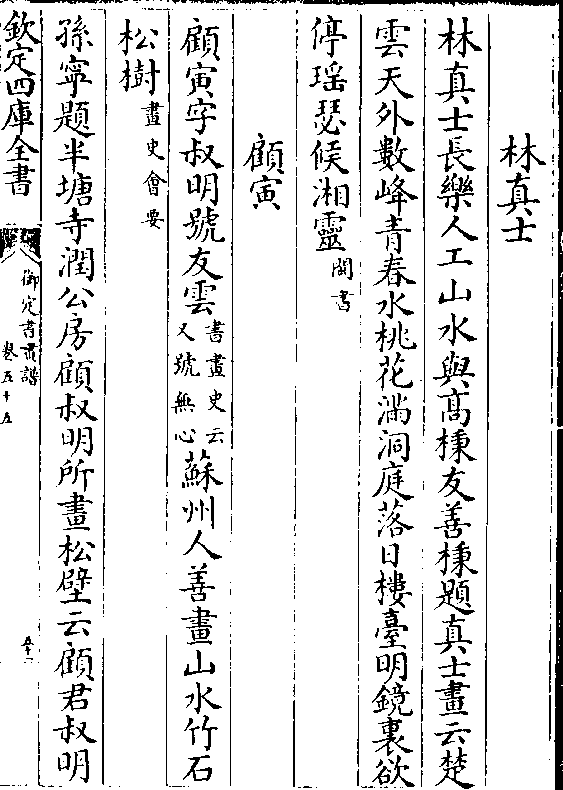 林真士
林真士長樂人工山水與髙棅友善棅題真士畫云楚
雲天外數峰青春水桃花滿洞庭落日樓臺明鏡裏欲
停瑶瑟候湘靈閩書
顧寅
顧寅字叔明號友雲書畫史云又號無心蘇州人善畫山水竹石
松樹畫史會要
孫寧題半塘寺潤公房顧叔明所畫松壁云顧君叔明
欽定四庫全書
御定書畫譜
卷五十五